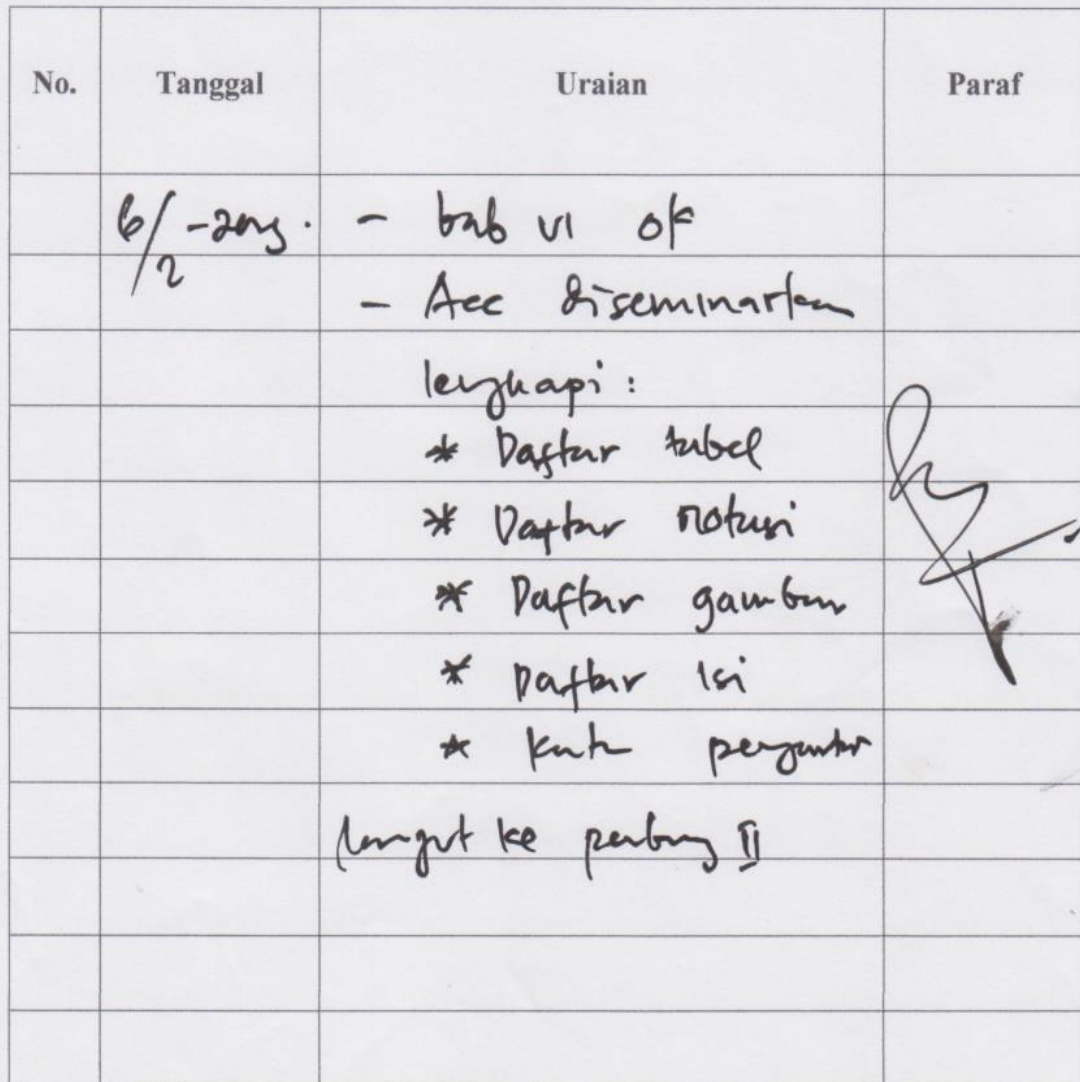 No. Tanggal Uraian Paraf
6/2 - bab VI ok
- Acc diseminarkan
lengkapi :
* Daftar tabel
* Daftar notasi
* Daftar gambar
* Daftar Isi
* Kata pengantar
lanjut ke pembimbing II